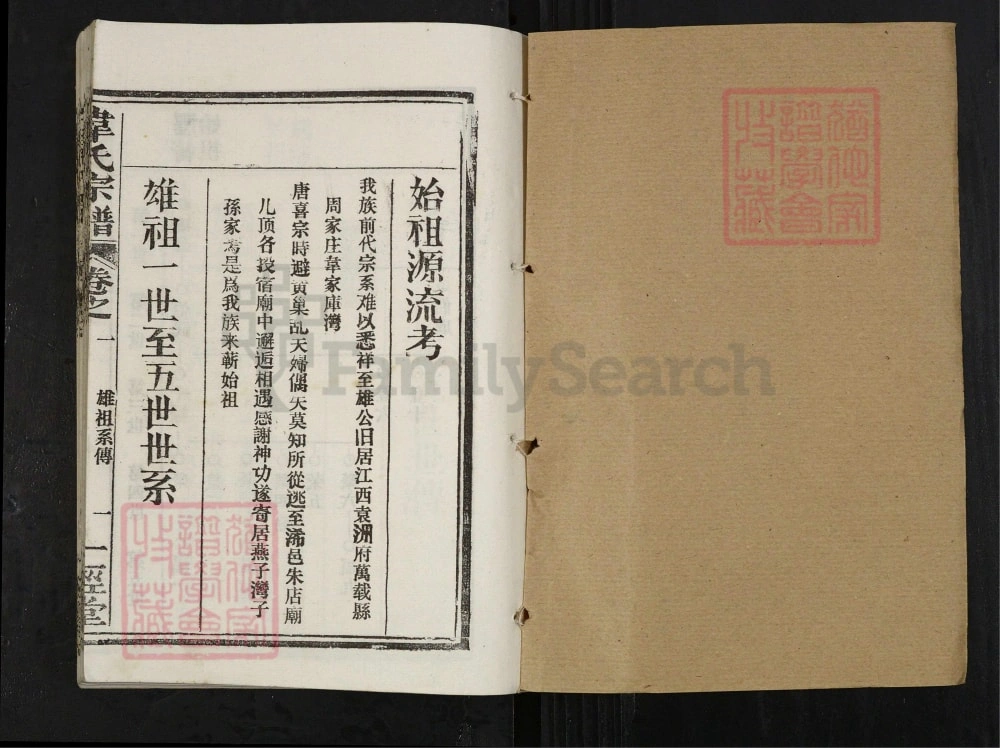 始祖源流考
我族前代宗系难以悉祥至雄公旧居江西袁洲府萬载縣
周家庄韋家庫灣
唐喜宗時避黄巢乱夫婦偶失莫知所從逃至浠邑朱店廟
儿顶各投宿廟中邂逅相遇感謝神功遂寄居燕子灣子
孫家焉是爲我族来蕲始祖
雄祖一世至五世世系
韋氏宗譜
卷之一
雄祖系傳
一
一經堂
FamilySearch